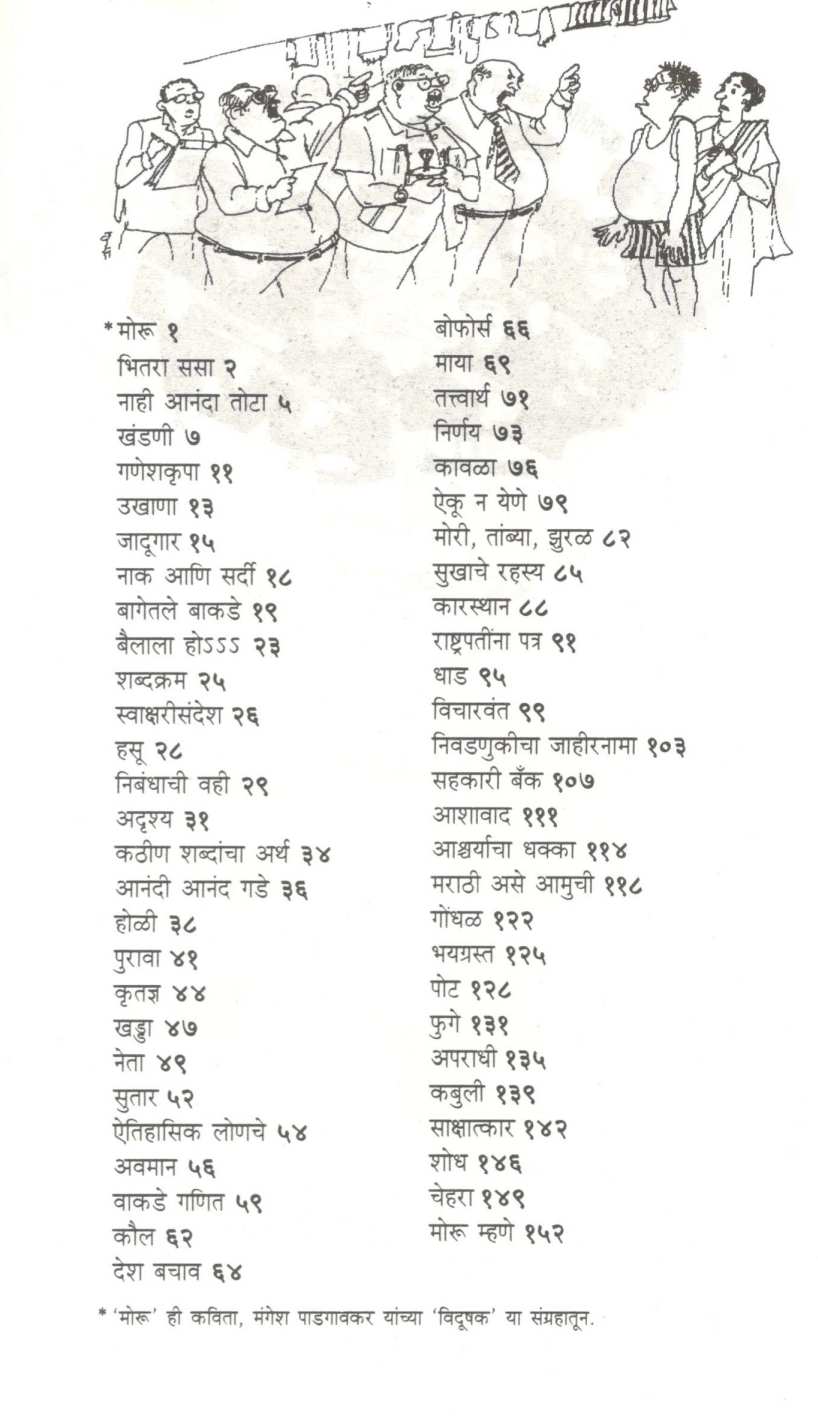 * मोरू १
भितरा ससा २
नाही आनंदा तोटा ५
खंडणी ७
गणेशकृपा ११
उखाणा १३
जादूगार १५
नाक आणि सर्दी १८
बागेतले बाकडे १९
बैलाला होऽऽऽ २३
शब्दक्रम २५
स्वाक्षरीसंदेश २६
हसू २८
निबंधाची वही २९
अदृश्य ३१
कठीण शब्दांचा अर्थ ३४
आनंदी आनंद गडे ३६
होळी ३८
पुरावा ४१
कृतज्ञ ४४
खड्डा ४७
नेता ४९
सुतार ५२
ऐतिहासिक लोणचे ५४
अवमान ५६
वाकडे गणित ५९
कौल ६२
देश बचाव ६४
बोफोर्स ६६
माया ६९
तत्त्वार्थ ७१
निर्णय ७३
कावळा ७६
ऐकू न येणे ७९
मोरी, तांब्या, झुरळ ८२
सुखाचे रहस्य ८५
कारस्थान ८८
राष्ट्रपतींना पत्र ९१
धाड ९५
विचारवंत ९९
निवडणुकीचा जाहीरनामा १०३
सहकारी बँक १०७
आशावाद १११
आश्चर्याचा धक्का ११४
मराठी असे आमुची ११८
गोंधळ १२२
भयग्रस्त १२५
पोट १२८
फुगे १३१
अपराधी १३५
कबुली १३९
साक्षात्कार १४२
शोध १४६
चेहरा १४९
मोरू म्हणे १५२
* 'मोरू' ही कविता, मंगेश पाडगावकर यांच्या 'विदूषक' या संग्रहातून.